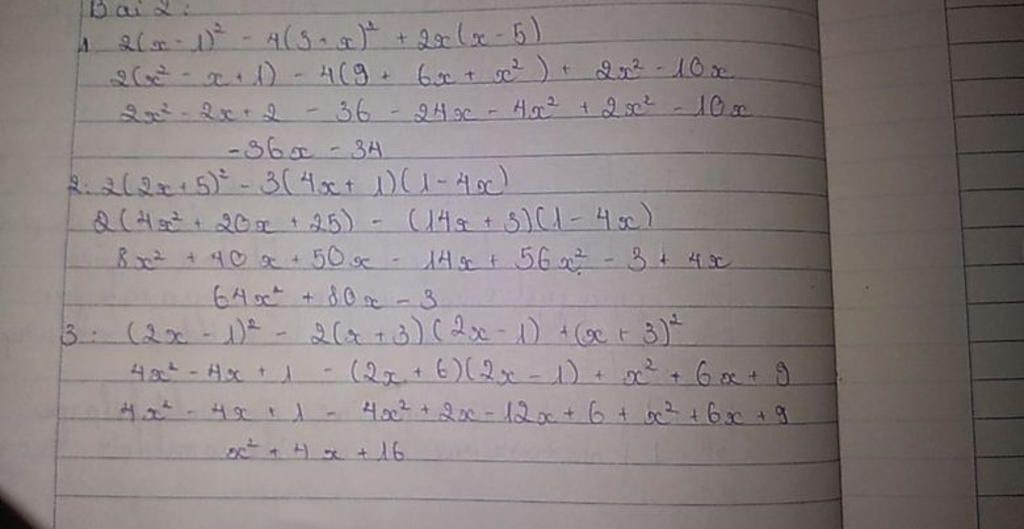 Bài 2:
1. 2(x - 1)² - 4(3 + x)² + 2x(x - 5)
2(x² - x + 1) - 4(9 + 6x + x²) + 2x² - 10x
2x² - 2x + 2 - 36 - 24x - 4x² + 2x² - 10x
-36x - 34
2. 2(2x + 5)² - 3(4x + 1)(1 - 4x)
2(4x² + 20x + 25) - (14x + 3)(1 - 4x)
8x² + 40x + 50x - 14x + 56x² - 3 + 4x
64x² + 80x - 3
3: (2x - 1)² - 2(x + 3)(2x - 1) + (x + 3)²
4x² - 4x + 1 - (2x + 6)(2x - 1) + x² + 6x + 9
4x² - 4x + 1 - 4x² + 2x - 12x + 6 + x² + 6x + 9
x² + 4x + 16